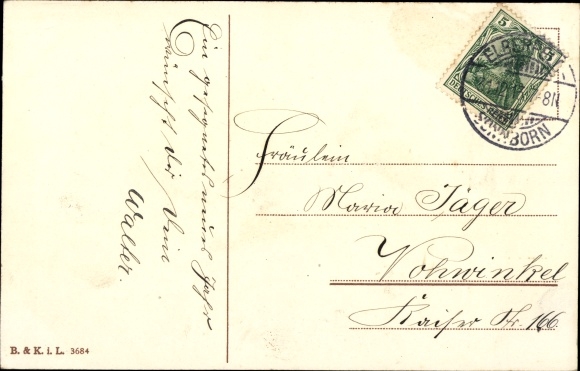 Ein gesegnetes neues Jahr
wünscht Dir Dein
Walter.
Fräulein
Maria Jäger
Vohwinkel
Kaiser Str. 166.
5 5
ELBERF
SONNBORN
8N
B. & K. i. L. 3684